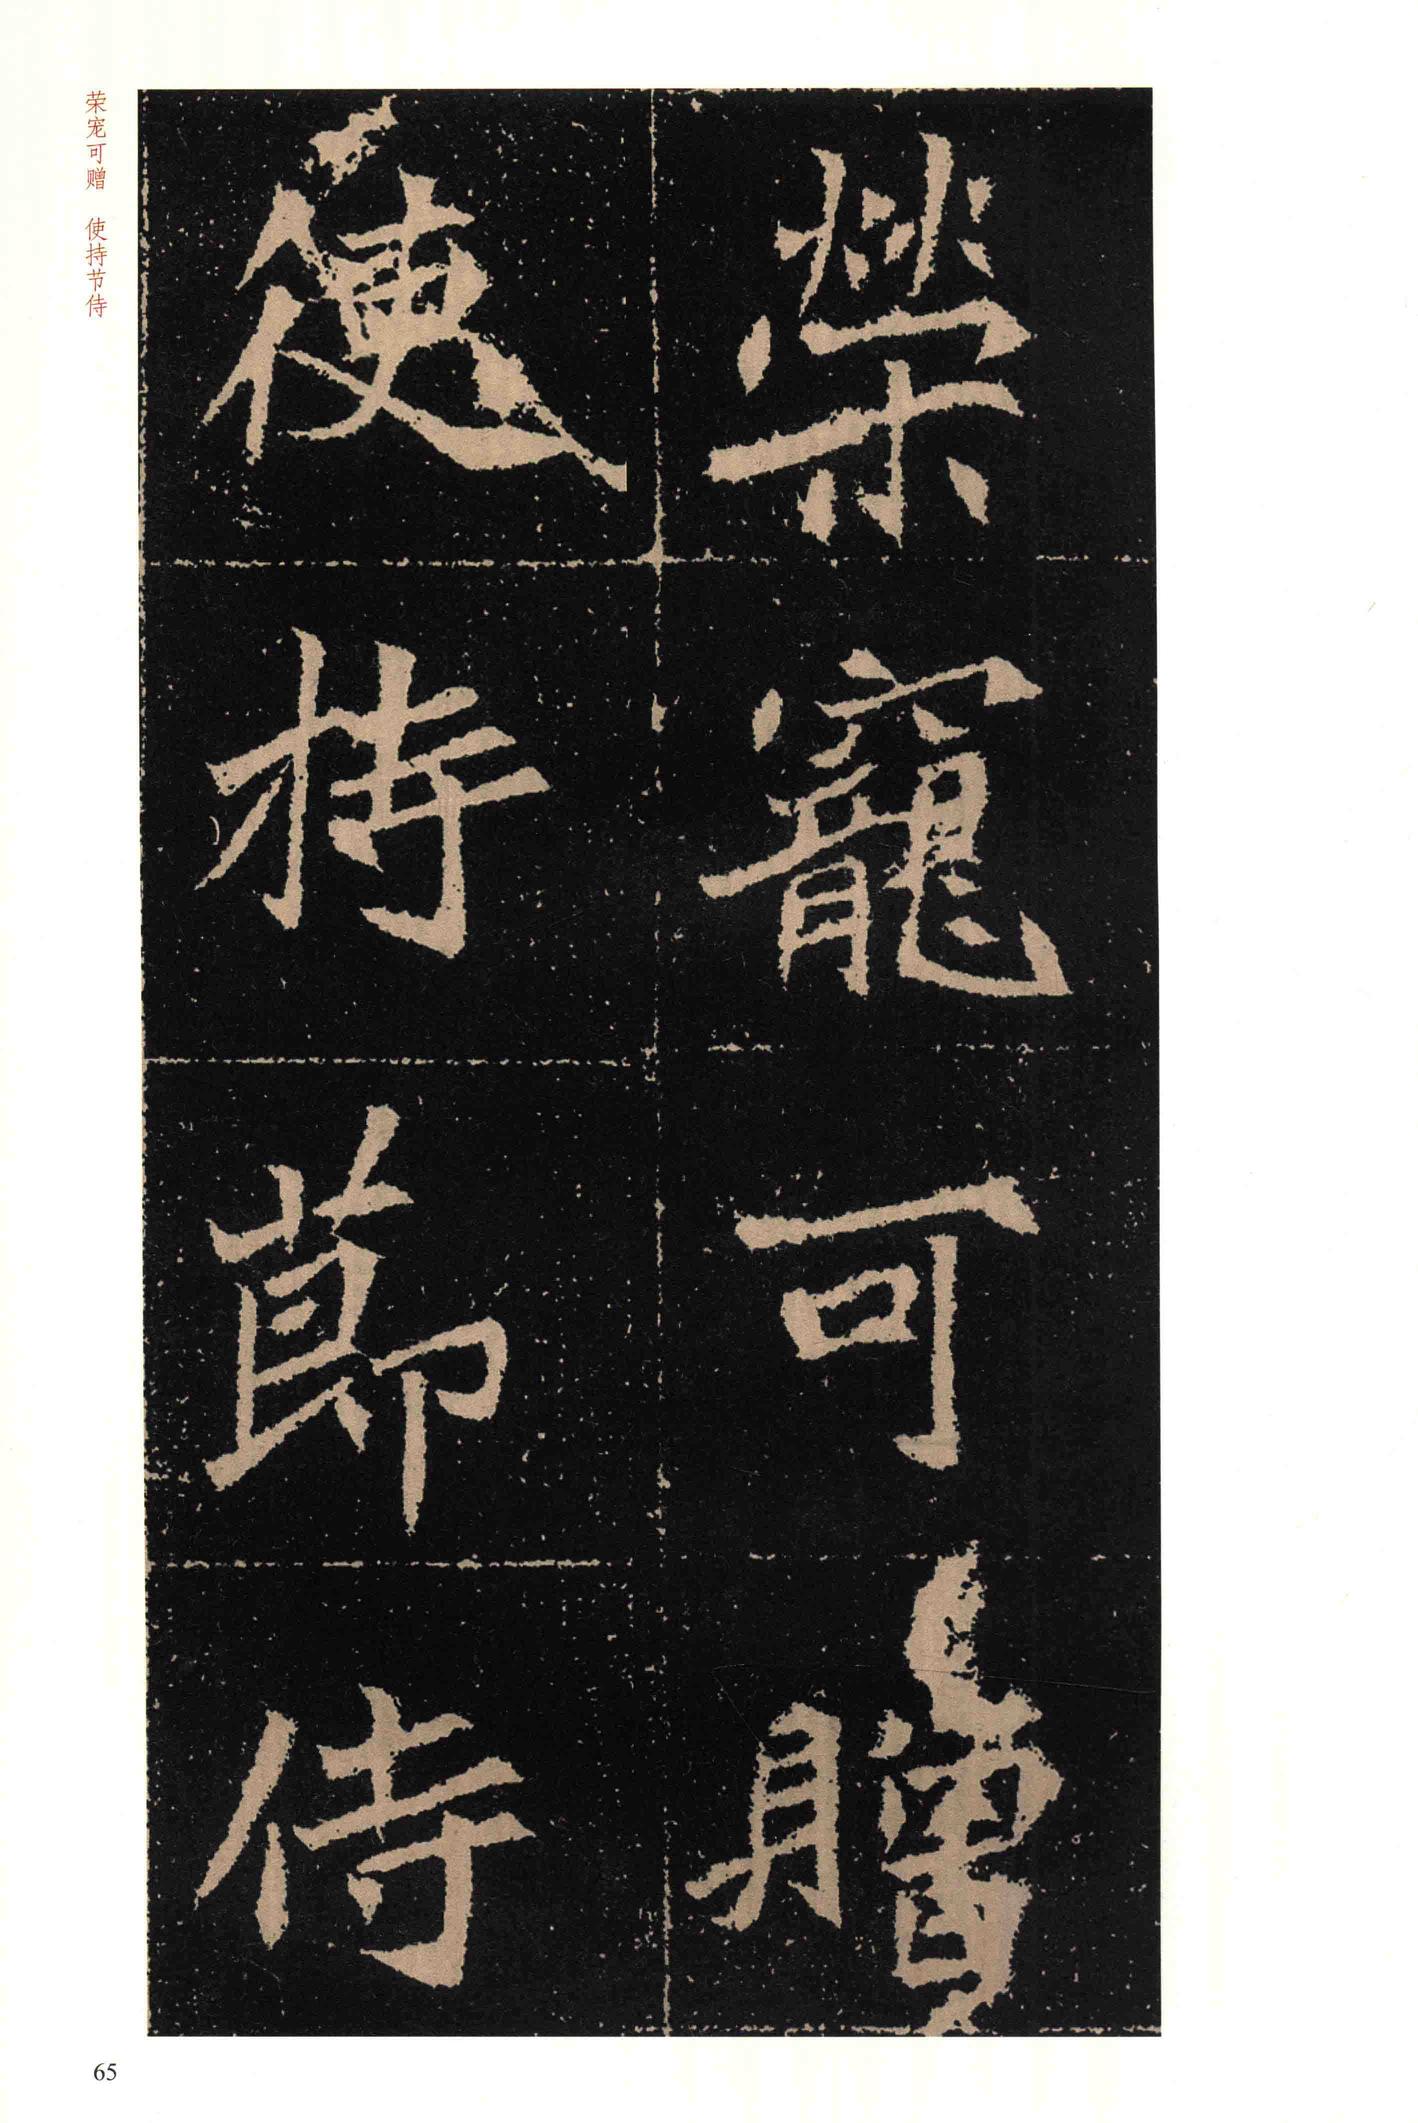 榮寵可贈
使持節侍
荣宠可赠 使持节侍
65